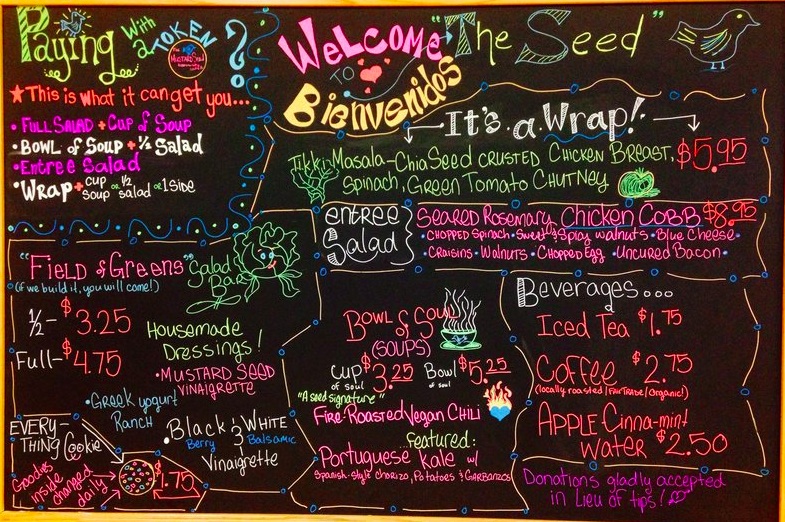 Paying With a TOKEN ?
The MUSTARD SEED
★ This is what it can get you...
• FULL SALAD + CUP of SOUP
• BOWL of SOUP + ½ SALAD
• Entree Salad
• WRAP + cup soup or ½ salad or 1 side
WELCOME TO "THE SEED"
Bienvenidos
It's a Wrap!
Tikki Masala - Chia Seed CRUSTED CHICKEN BREAST, $5.95
Spinach, GREEN TOMATO CHUTNEY
entree Salad
SEARED ROSEMARY CHICKEN COBB $8.95
• CHOPPED Spinach • Sweet & Spicy walnuts • Blue Cheese •
• CRAISINS • WALNUTS • CHOPPED Egg • UNCURED BACON •
"FIELD of GREENS" Salad Bar
(if we build it, you will come!)
½ - $3.25
Full - $4.75
Housemade Dressings!
• MUSTARD SEED VINAIGRETTE
• GREEK yogurt RANCH
• Black & WHITE
Berry Balsamic
Vinaigrette
EVERY-THING Cookie
Goodies inside changed daily
$1.75
BOWL of SOUL
(SOUPS)
CUP of soul $3.25 Bowl of soul $5.25
"A seed signature"
FIRE-ROASTED VEGAN CHILI
featured:
Portuguese Kale w/
Spanish-style chorizo, Potatoes & GARBANZOS
BEVERAGES...
ICED TEA $1.75
COFFEE $2.75
(locally roasted / FAIR TRADE / Organic!)
APPLE Cinna-mint WATER $2.50
Donations gladly accepted
in Lieu of tips!